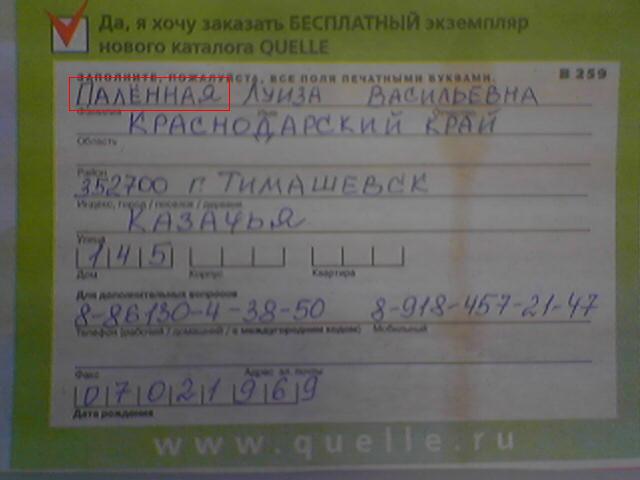 Да, я хочу заказать БЕСПЛАТНЫЙ экземпляр
нового каталога QUELLE
ЗАПОЛНИТЕ, ПОЖАЛУЙСТА, ВСЕ ПОЛЯ ПЕЧАТНЫМИ БУКВАМИ. В 259
ПАЛЁННАЯ ЛУИЗА ВАСИЛЬЕВНА
Фамилия Имя
КРАСНОДАРСКИЙ КРАЙ
Область
Район
352700 г. ТИМАШЕВСК
Индекс, город / поселок / деревня
КАЗАЧЬЯ
Улица
145
Дом Корпус Квартира
Для дополнительных вопросов
8-86130-4-38-50 8-918-457-21-47
Телефон (рабочий / домашний / с междугородним кодом) Мобильный
Факс Адрес эл. почты
07021969
Дата рождения
www.quelle.ru